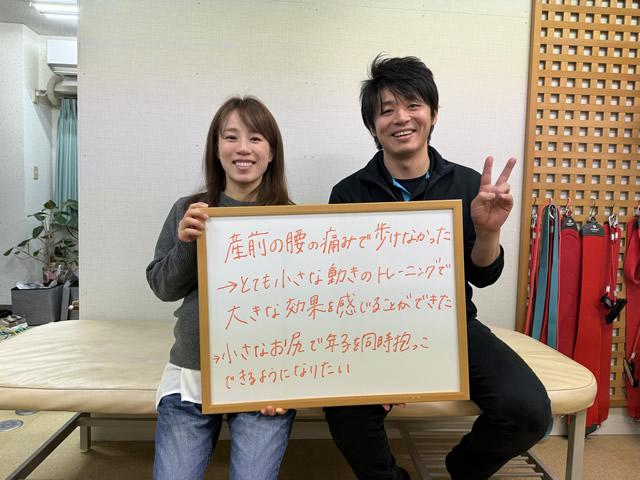 産前の腰の痛みで歩けなかった
→とても小さな動きのトレーニングで
大きな効果を感じることができた
→小さなお尻で年子を同時抱っこ
できるようになりたい